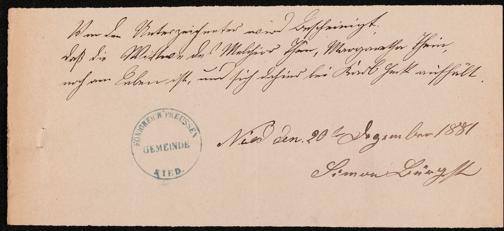 Von dem Unterzeichneten wird bescheinigt,
daß die Wittwe des Melchior Thein, Margaretha Thein
noch am Leben ist, und sich dahier bei Karl aufhält.
KÖNIGREICH PREUSSEN
GEMEINDE
NIED.
Nied den 20t Dezember 1881
Simon Bürgst